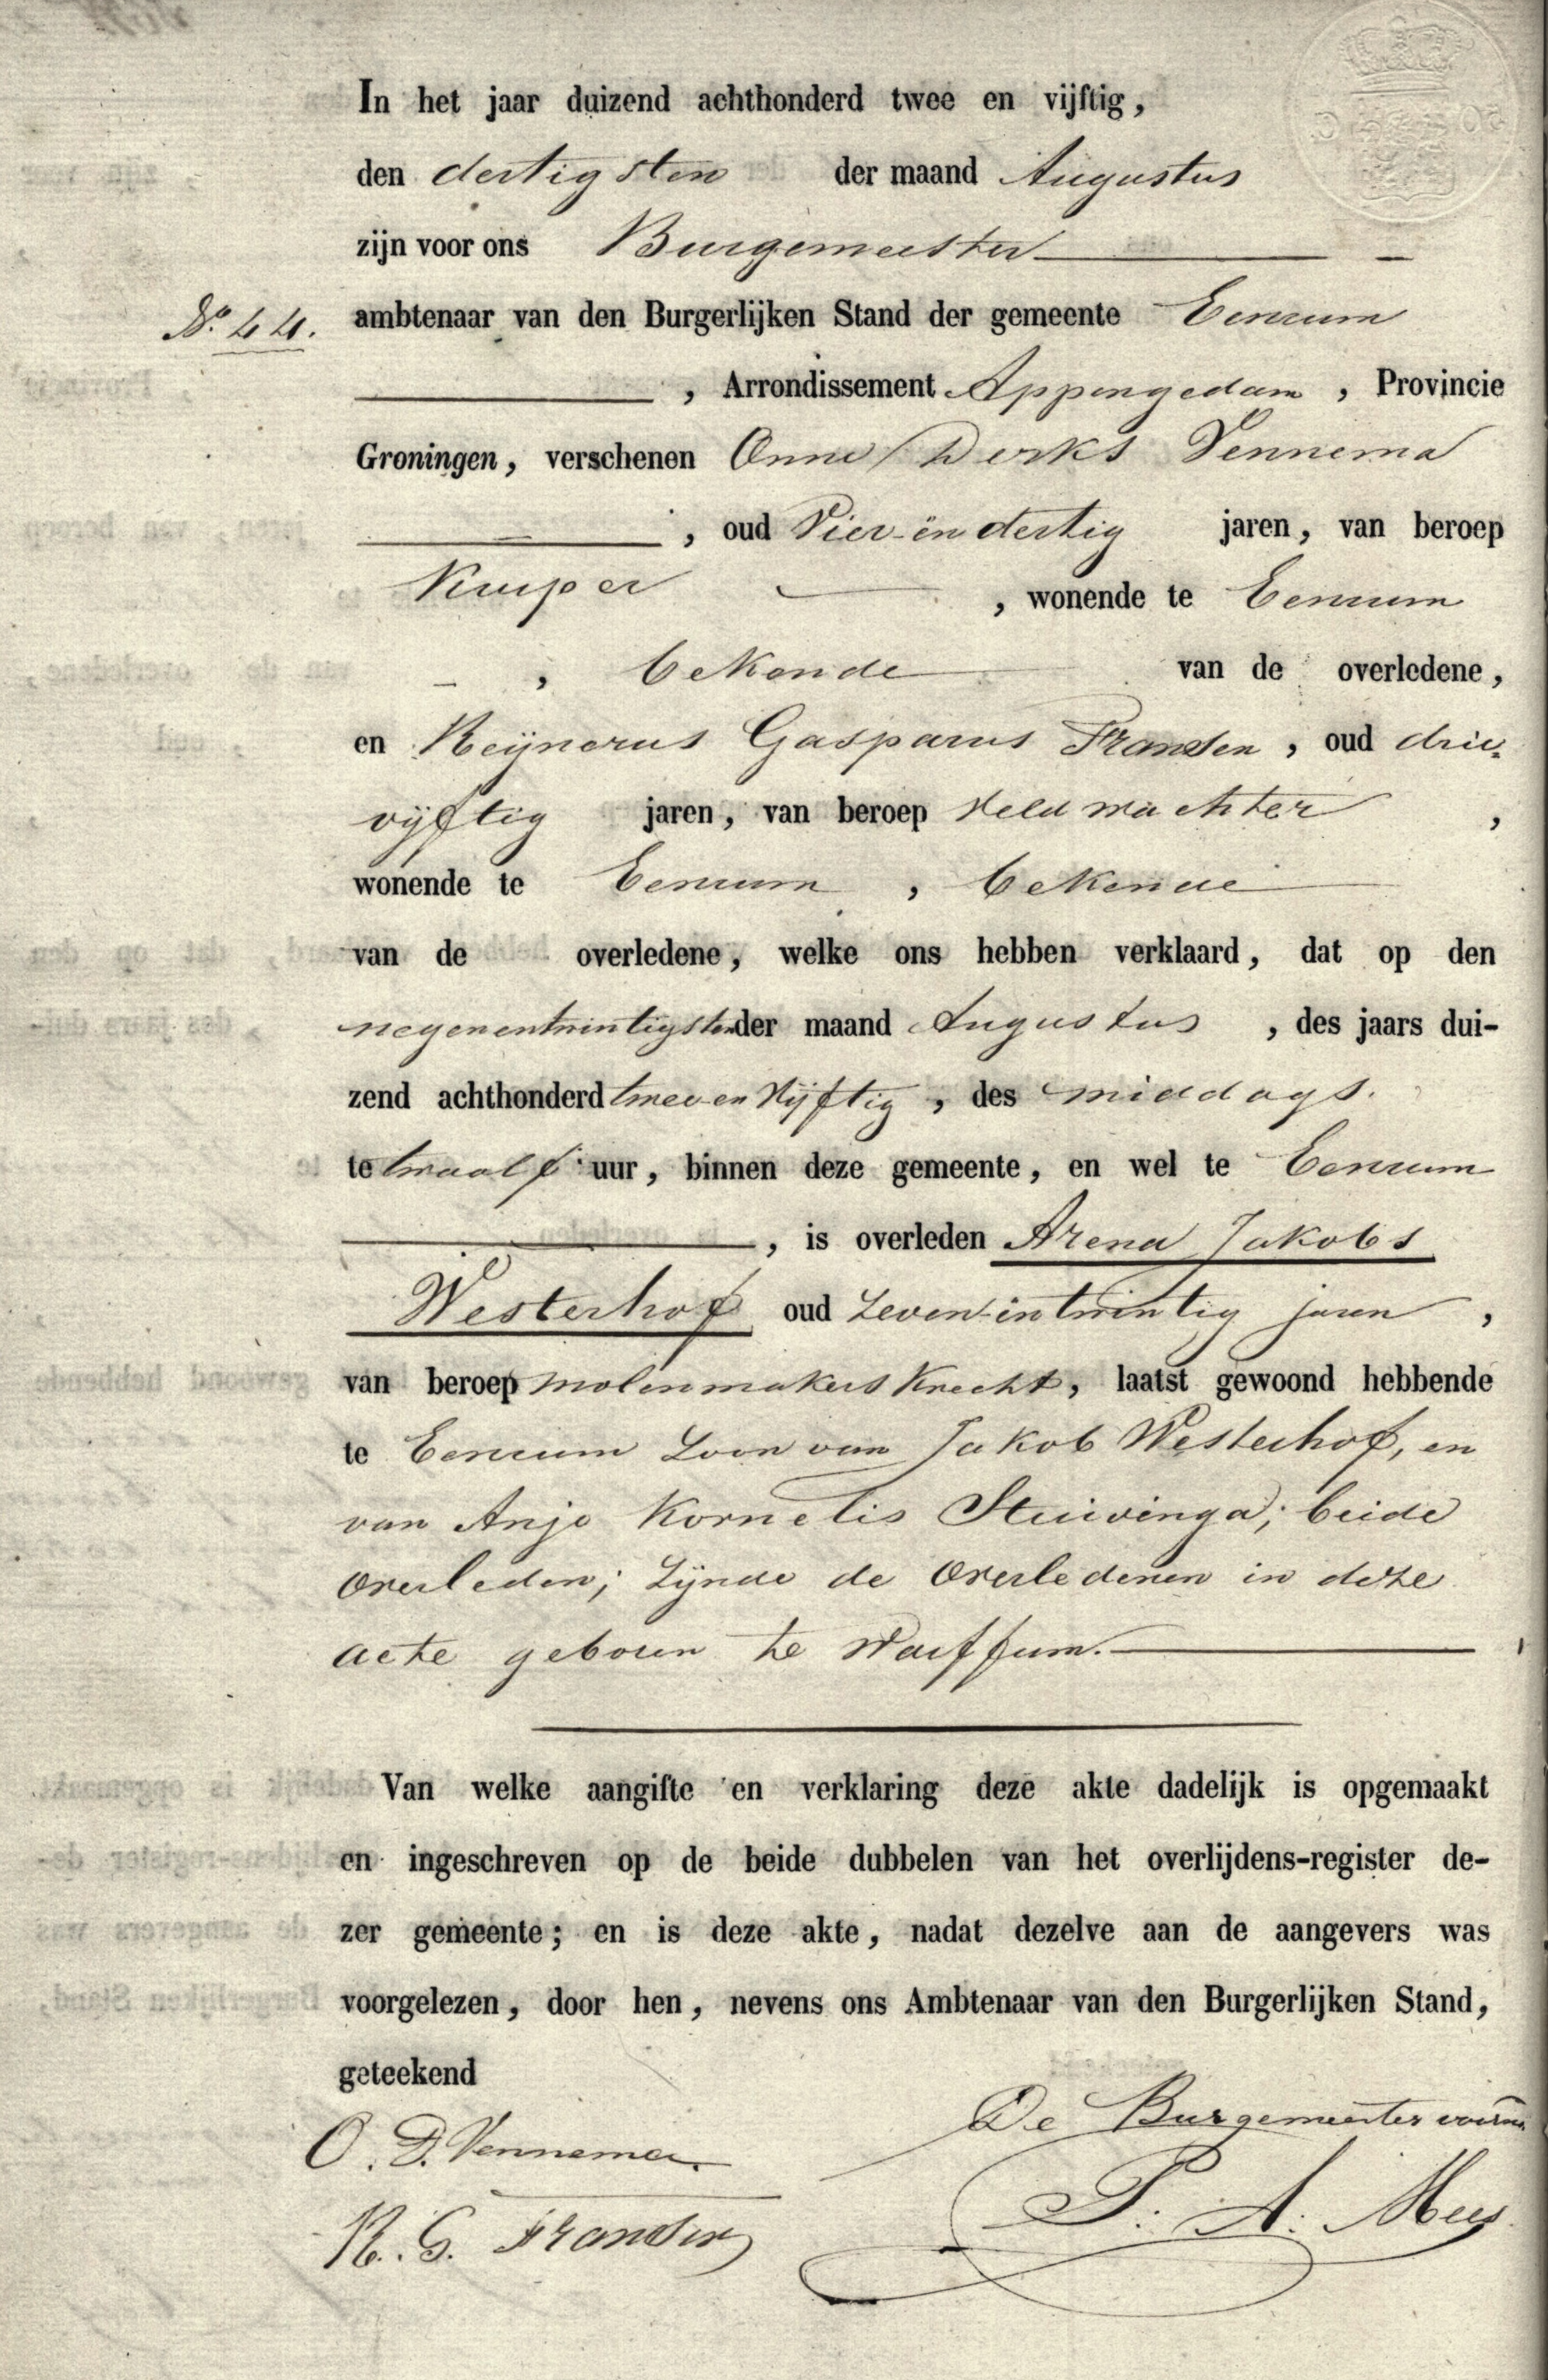 In het jaar duizend achthonderd twee en vijftig,
den dertigsten der maand Augustus
zijn voor ons Burgemeester
No. 44. ambtenaar van den Burgerlijken Stand der gemeente Eenrum
, Arrondissement Appingedam, Provincie
Groningen, verschenen Onne Derks Vennema
, oud Vier en dertig jaren, van beroep
Kuiper , wonende te Eenrum
, bekende van de overledene,
en Reijnerus Gasparus Fransen, oud drie-
vijftig jaren, van beroep Veldwachter ,
wonende te Eenrum , bekende
van de overledene, welke ons hebben verklaard, dat op den
negenentwintigsten der maand Augustus , des jaars dui-
zend achthonderd twee en Vijftig , des middags.
te twaalf uur, binnen deze gemeente, en wel te Eenrum
, is overleden Arend Jakobs
Westerhof oud Zeven en twintig jaren ,
van beroep molenmakers Knecht, laatst gewoond hebbende
te Eenrum Zoon van Jakob Westerhof, en
van Anje Kornelis Stuivinga; beide
Overleden; Zijnde de Overledenen in deze
acte geboren te Warffum.
Van welke aangifte en verklaring deze akte dadelijk is opgemaakt
en ingeschreven op de beide dubbelen van het overlijdens-register de-
zer gemeente; en is deze akte, nadat dezelve aan de aangevers was
voorgelezen, door hen, nevens ons Ambtenaar van den Burgerlijken Stand,
geteekend
De Burgemeester
O. D. Vennema
R. G. Fransen